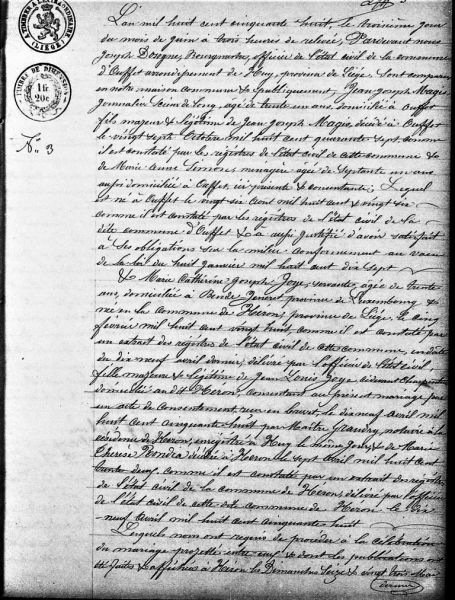 L'an mil huit cent cinquante huit, le troisième jour
du mois de juin à trois heures de relevée, Pardevant nous
Joseph Bourgmestre, officier de l'état civil de la commune
d'Ouffet arrondissement de Huy, province de Liège. Sont comparus
en notre maison commune & publiquement, Jean Joseph Magis
Scieur de Long, agé de trente un ans, domicilié à Ouffet
N° 3
fils majeur & légitime de Jean Joseph Magis, décédé à Ouffet
le vingt sept Octobre mil huit cent quarante sept comme
il est constaté par les registres de l'état civil de cette commune &
de Marie Anne Simon, ménagère agée de Septante un ans
aussi domiciliée à Ouffet, ici présente & consentante; Lequel
est né à Ouffet le vingt six Aout mil huit cent & vingt six
comme il est constaté par les registres de l'état civil de la
dite commune d'Ouffet & a aussi justifié d'avoir satisfait
à ses obligations sur la milice conformément au vœu
de la loi du huit janvier mil huit cent dix sept
& Marie Catherine Joseph Joye, servante, agée de trente
ans, domiciliée à Bende, province de Luxembourg &
née en la commune de Héron, province de Liège le cinq
février mil huit cent vingt huit, comme il est constaté par
un extrait des registres de l'état civil de cette commune, en date
du dix neuf avril dernier, délivré par l'officier de l'état civil
fille majeure & légitime de Jean Louis Joye
domicilié audit Héron, consentant au présent mariage par
un acte de consentement reçu en brevet, le dix neuf avril mil
huit cent cinquante huit par Maître Grandry, notaire à la
résidence de Héron, enregistré à Huy le même jour, & de Marie
Thérèse décédée à Héron le sept avril mil huit cent
trente deux comme il est constaté par un extrait des registres
de l'état civil de la commune de Héron, délivré par l'officier
de l'état civil de cette dite commune de Héron le dix
neuf Avril mil huit cent cinquante huit
Lesquels nous ont requis de procéder à la célébration
du mariage projetté entre eux & dont les publications ont
été faites & affichées à Héron les Dimanches Seize & vingt trois Mai
dernier